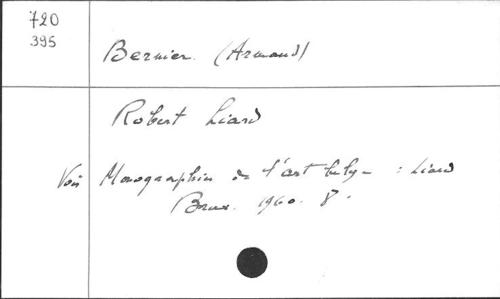 720
395
Bernier. (Armand)
Robert Liard
Voir Monographies de l'art belge : Liard
Brux. 1960. 8°.